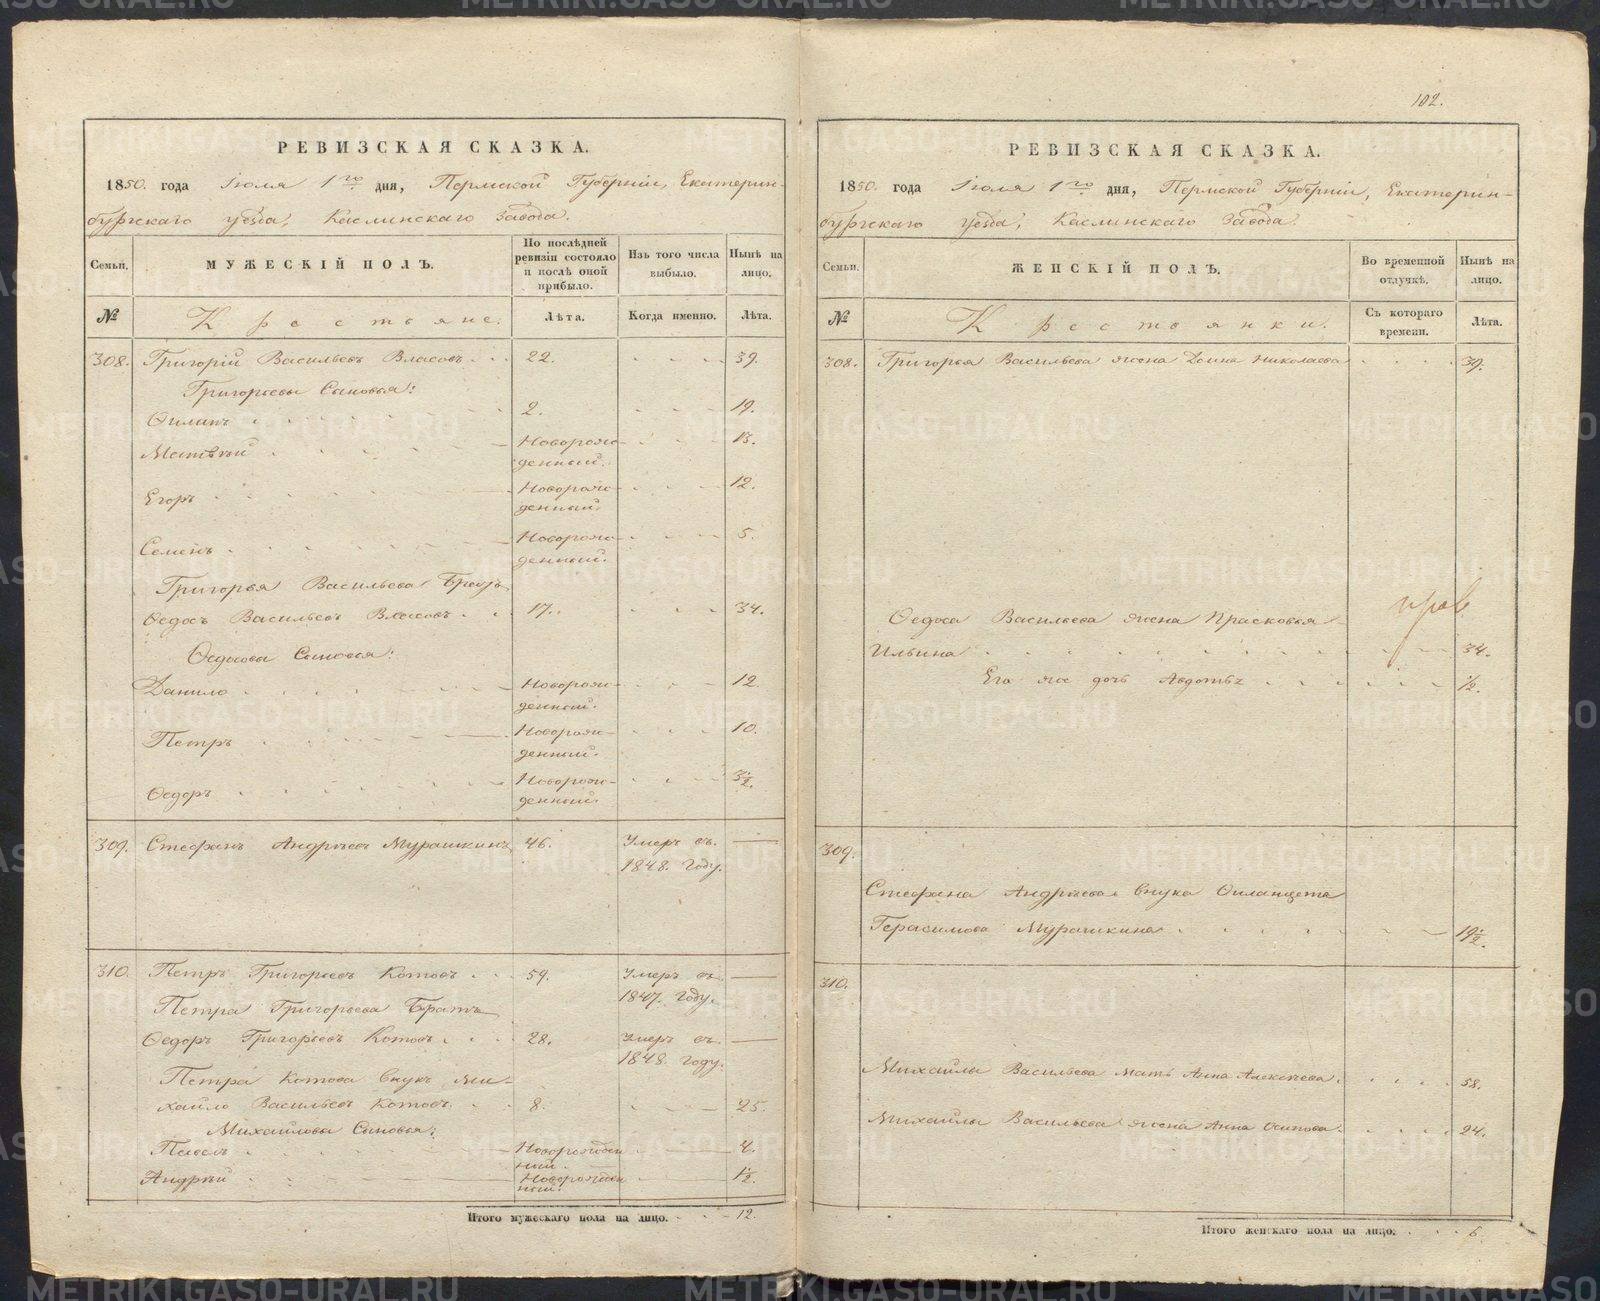 РЕВИЗСКАЯ СКАЗКА.
1850. года Іюля 1го дня, Пермской Губерніи, Екатерин-
бургскаго уѣзда, Каслинскаго Завода.
Семьи.
МУЖЕСКІЙ ПОЛЪ.
По послѣдней ревизіи состояло и послѣ оной прибыло.
Изъ того числа выбыло.
Нынѣ на лицо.
№
Крестьяне.
Лѣта.
Когда именно.
Лѣта.
308. Григорій Васильевъ Власовъ 22. 39.
Григорьевы Сыновья:
Филипъ 2. 19.
Матвѣй Новорож- 13.
денный.
Егоръ Новорож- 12.
денный.
Семенъ Новорож- 5.
денный.
Григорья Васильева Братъ
Федосъ Васильевъ Власовъ 17. 34.
Федосовы Сыновья:
Данило Новорож- 12.
денный.
Петръ Новорож- 10.
денный.
Федоръ Новорож- 3½.
денный.
309. Стефанъ Андреевъ Мурашкинъ 46. Умеръ въ
1848. году.
310. Петръ Григорьевъ Котовъ 59. Умеръ въ
1847. году.
Петра Григорьева Братъ
Федоръ Григорьевъ Котовъ 28. Умеръ въ
1848. году.
Петра Котова внукъ Ми-
хайло Васильевъ Котовъ 8. 25.
Михайловы Сыновья:
Павелъ Новорожден 4.
ный.
Андрей Новорожден 1½.
ный.
Итого мужескаго пола на лицо. 12.
102.
РЕВИЗСКАЯ СКАЗКА.
1850. года Іюля 1го дня, Пермской Губерніи, Екатерин-
бургскаго уѣзда, Каслинскаго Завода.
Семьи.
ЖЕНСКІЙ ПОЛЪ.
Во временной отлучкѣ.
Нынѣ на лицо.
№
Крестьянки.
Съ котораго времени.
Лѣта.
308. Григорья Васильева жена Домна Николаева 39.
Федоса Васильева жена Прасковья
Ильина 34.
Его же дочь Авдотья ½.
309.
Стефана Андреева внука
Герасимова Мурашкина 19½.
310.
Михайлы Васильева мать Анна Алексѣева 58.
Михайлы Васильева жена Анна Осипова 24.
Итого женскаго пола на лицо. 6.
METRIKI.GASO-URAL.RU